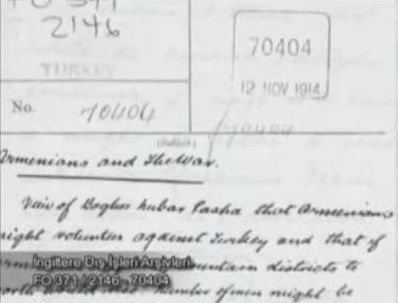 FO 371
2146
TURKEY
70404
12 NOV 1914
No. 70404
70404
(Subject)
Armenians and the War.
View of Boghos Nubar Pasha that Armenians
might volunteer against Turkey and that if
mountain districts to
number of men might be
İngiltere Dış İşleri Arşivleri
FO 371 / 2146 - 70404